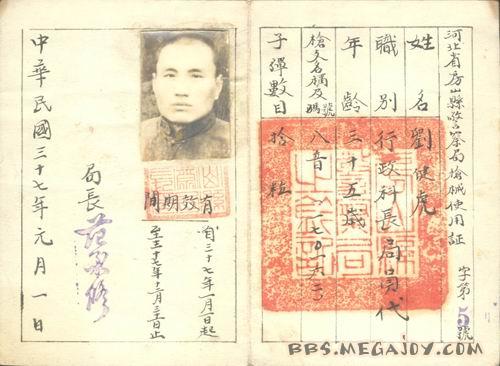 河北省房山縣警察局槍械使用証
字第5號
姓名 劉健虎
職別 行政科長局員代
年齡 三十五歲
槍支名稱及號碼 八音
子彈數目 拾粒
有效期間
自三十七年一月一日起
至三十七年十二月三十日止
局長
中華民國三十七年元月一日
BBS.MEGAJOY.COM